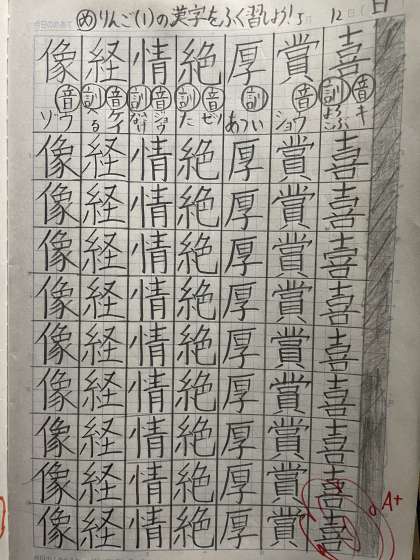 め りんご(1)の漢字をふく習しよう! 5 12 日
喜
音キ
訓よろこぶ
喜喜喜喜喜喜喜喜喜
賞
音ショウ
賞賞賞賞賞賞賞賞賞
厚
訓あつい
厚厚厚厚厚厚厚厚厚
絶
音ゼツ
訓た
絶絶絶絶絶絶絶絶絶
情
音ジョウ
訓なさけ
情情情情情情情情情
経
音ケイ
訓へる
経経経経経経経経経
像
音ゾウ
像像像像像像像像像
A+